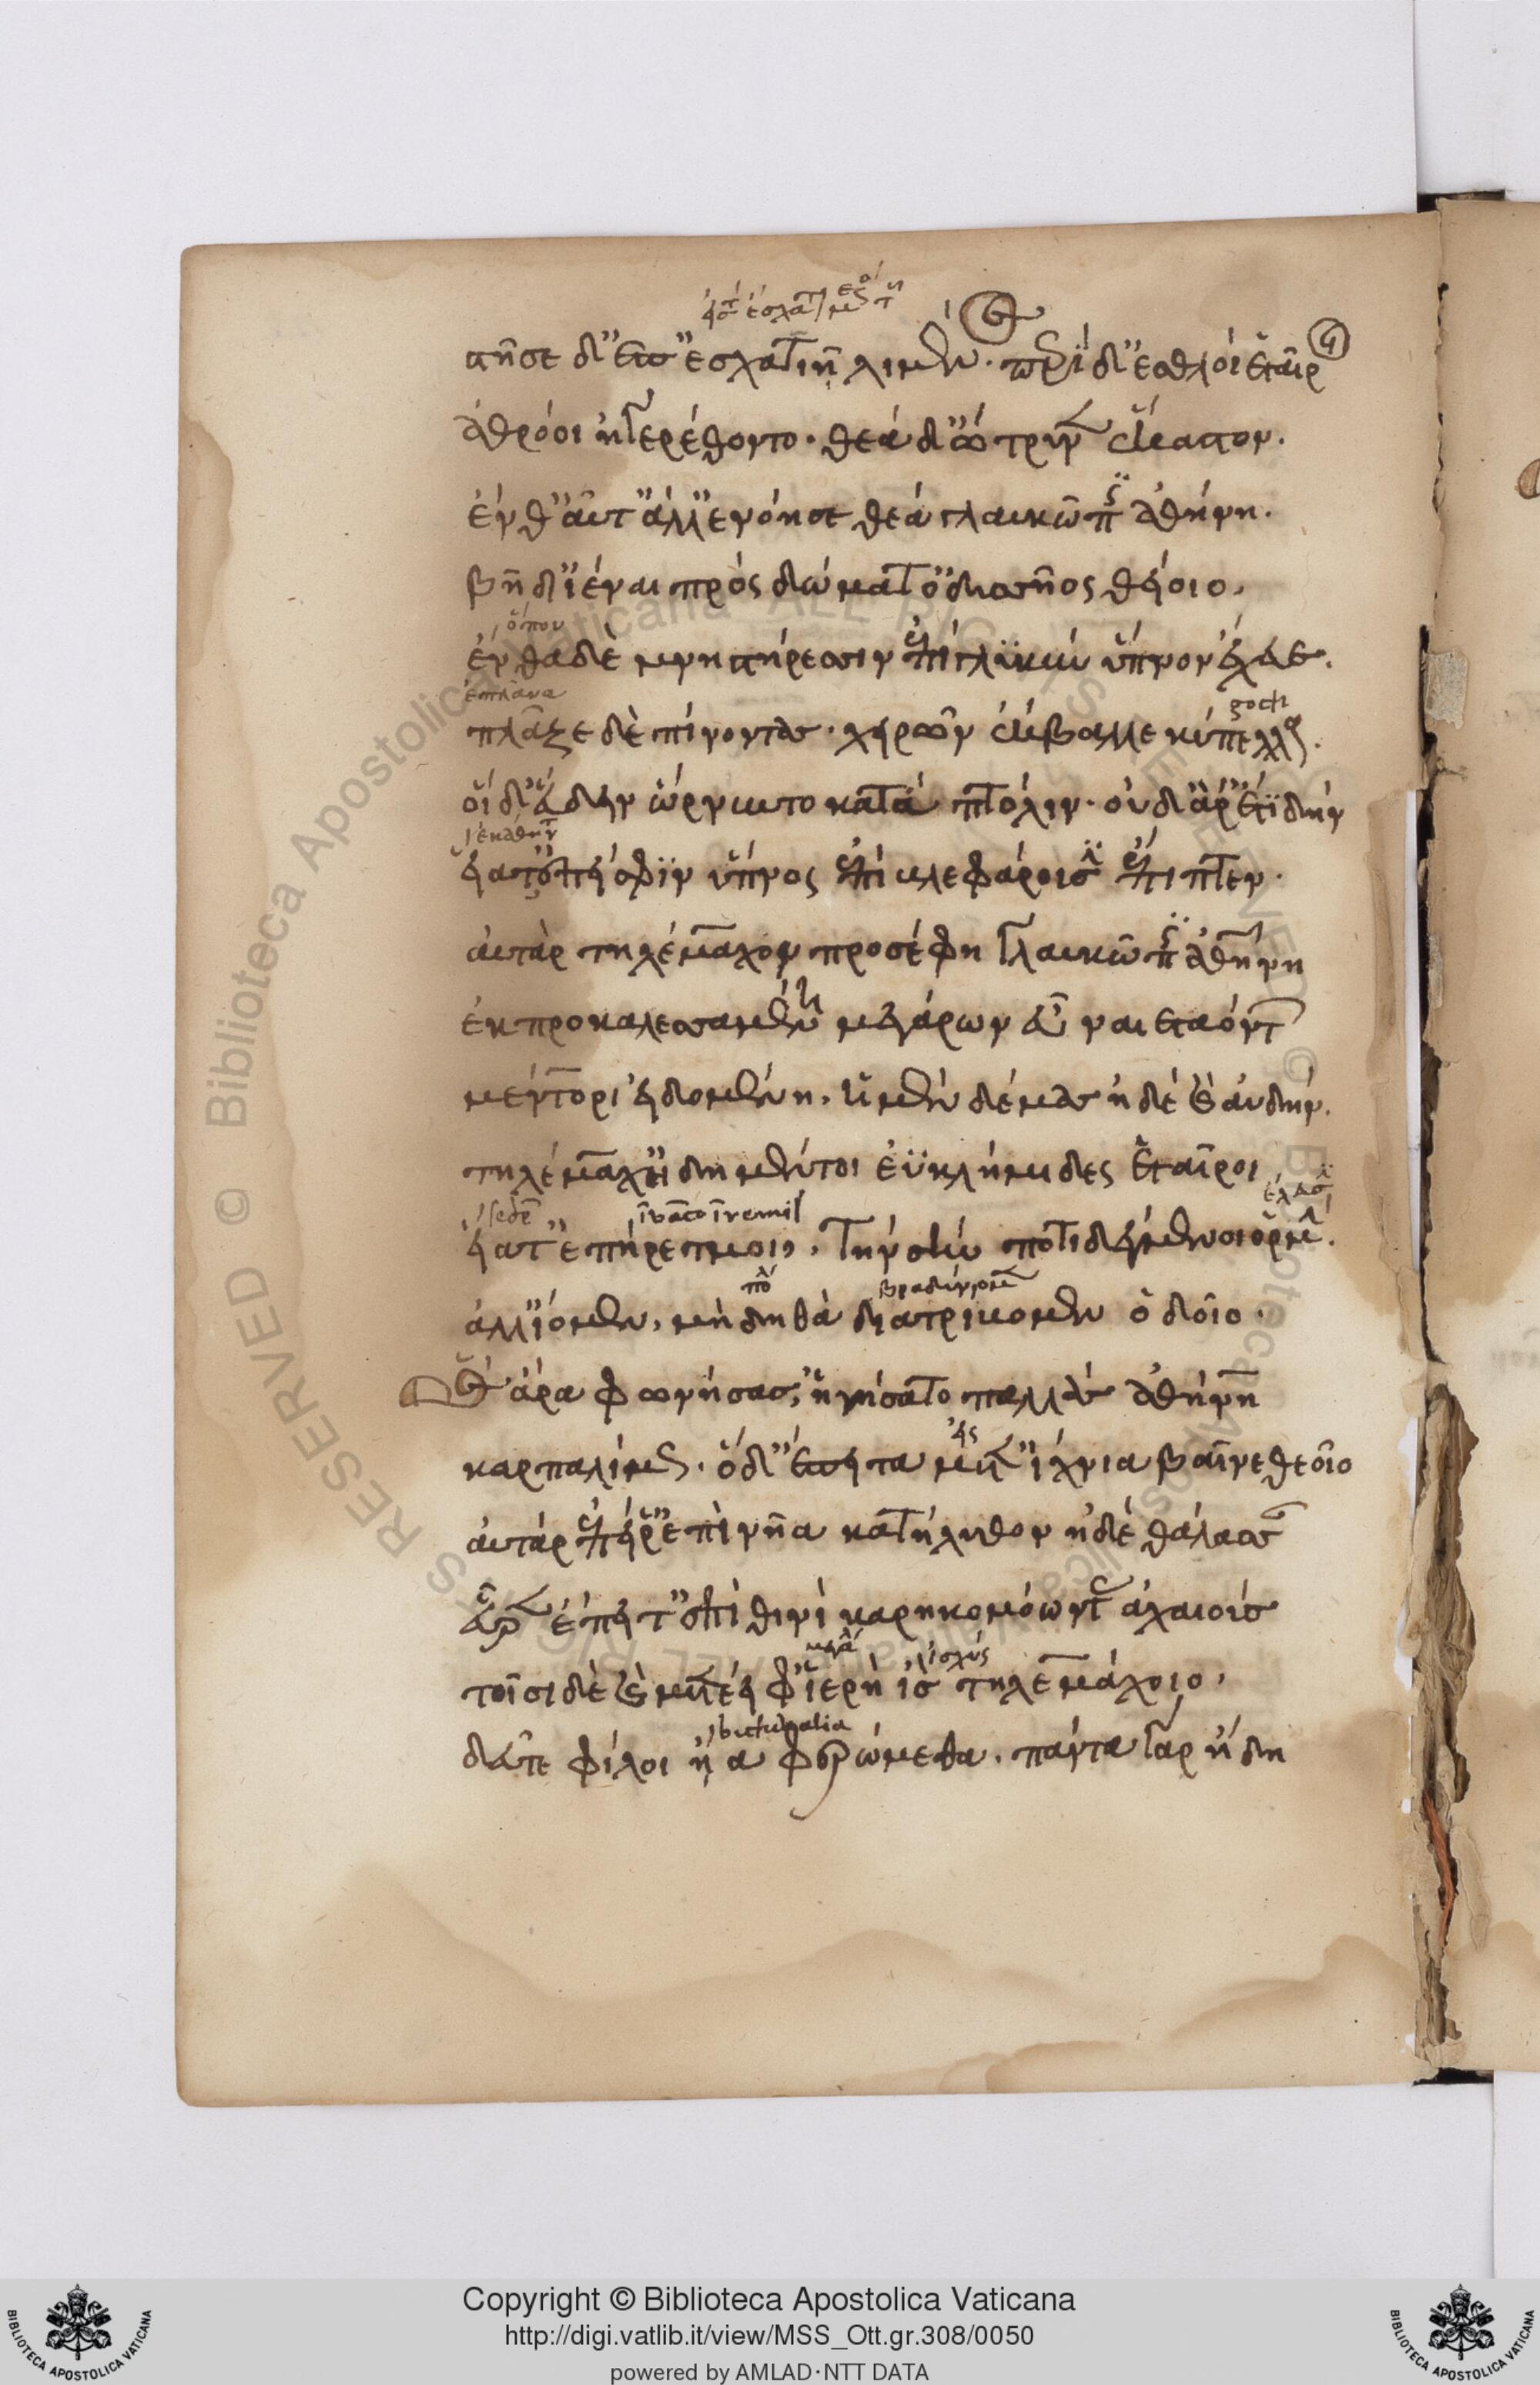 στῆσε δ' ἐπ' ἐσχατιῇ λιμένος. περὶ δ' ἐσθλοὶ ἑταῖροι
ἀθρόοι ἠγερέθοντο. θεὰ δ' ὤτρυνεν ἕκαστον.
ἔνθ' αὖτ' ἄλλ' ἐνόησε θεὰ γλαυκῶπις ἀθήνη.
βῆ δ' ἰέναι πρὸς δώματ' ὀδυσσῆος θείοιο.
ὅπου
ἔνθα δὲ μνηστήρεσσιν ἐπὶ γλυκὺν ὕπνον ἔχευε.
ἐπλάνα
πλᾶζε δὲ πίνοντας. χειρῶν δ' ἔκβαλλε κύπελλα.
οἱ δ' εὕδειν ὤρνυντο κατὰ πτόλιν. οὐδ' ἄρ' ἔτι δὴν
εἵατ' ἐπεί σφιν ὕπνος ἐπὶ βλεφάροισιν ἔπιπτεν.
αὐτὰρ τηλέμαχον προσέφη γλαυκῶπις ἀθήνη
ἐκπροκαλεσσαμένη μεγάρων εὖ ναιεταόντων
μέντορι εἰδομένη. ἠμὲν δέμας ἠδὲ καὶ αὐδήν.
τηλέμαχ' ἤδη μέν τοι ἐϋκνήμιδες ἑταῖροι
εἵατ' ἐπήρετμοι. τὴν σὴν ποτιδέγμενοι ὁρμήν.
ἀλλ' ἴομεν, μὴ δηθὰ διατρίβωμεν ὁδοῖο.
ὣς ἄρα φωνήσασ', ἡγήσατο παλλὰς ἀθήνη
καρπαλίμως. ὁ δ' ἔπειτα μετ' ἴχνια βαῖνε θεοῖο
αὐτὰρ ἐπεί ῥ' ἐπὶ νῆα κατήλυθον ἠδὲ θάλασσαν
εὗρον ἔπειτ' ἐπὶ θινὶ καρηκομόωντας ἀχαιούς
ἰσχύς
τοῖσι δὲ καὶ μετέειφ' ἱερὴ ἲς τηλεμάχοιο.
δεῦτε φίλοι ἤϊα φερώμεθα. πάντα γὰρ ἤδη
Copyright © Biblioteca Apostolica Vaticana
http://digi.vatlib.it/view/MSS_Ott.gr.308/0050
powered by AMLAD·NTT DATA